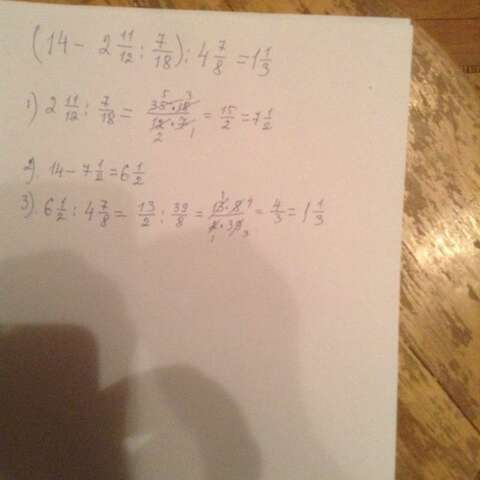 (14 - 2 11/12 : 7/18) : 4 7/8 = 1 1/3
1) 2 11/12 : 7/18 = 35·18/12·7 = 15/2 = 7 1/2
2). 14 - 7 1/2 = 6 1/2
3). 6 1/2 : 4 7/8 = 13/2 : 39/8 = 13·8/2·39 = 4/3 = 1 1/3